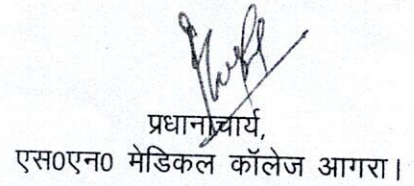 प्रधानाचार्य,
एस0एन0 मेडिकल कॉलेज आगरा।